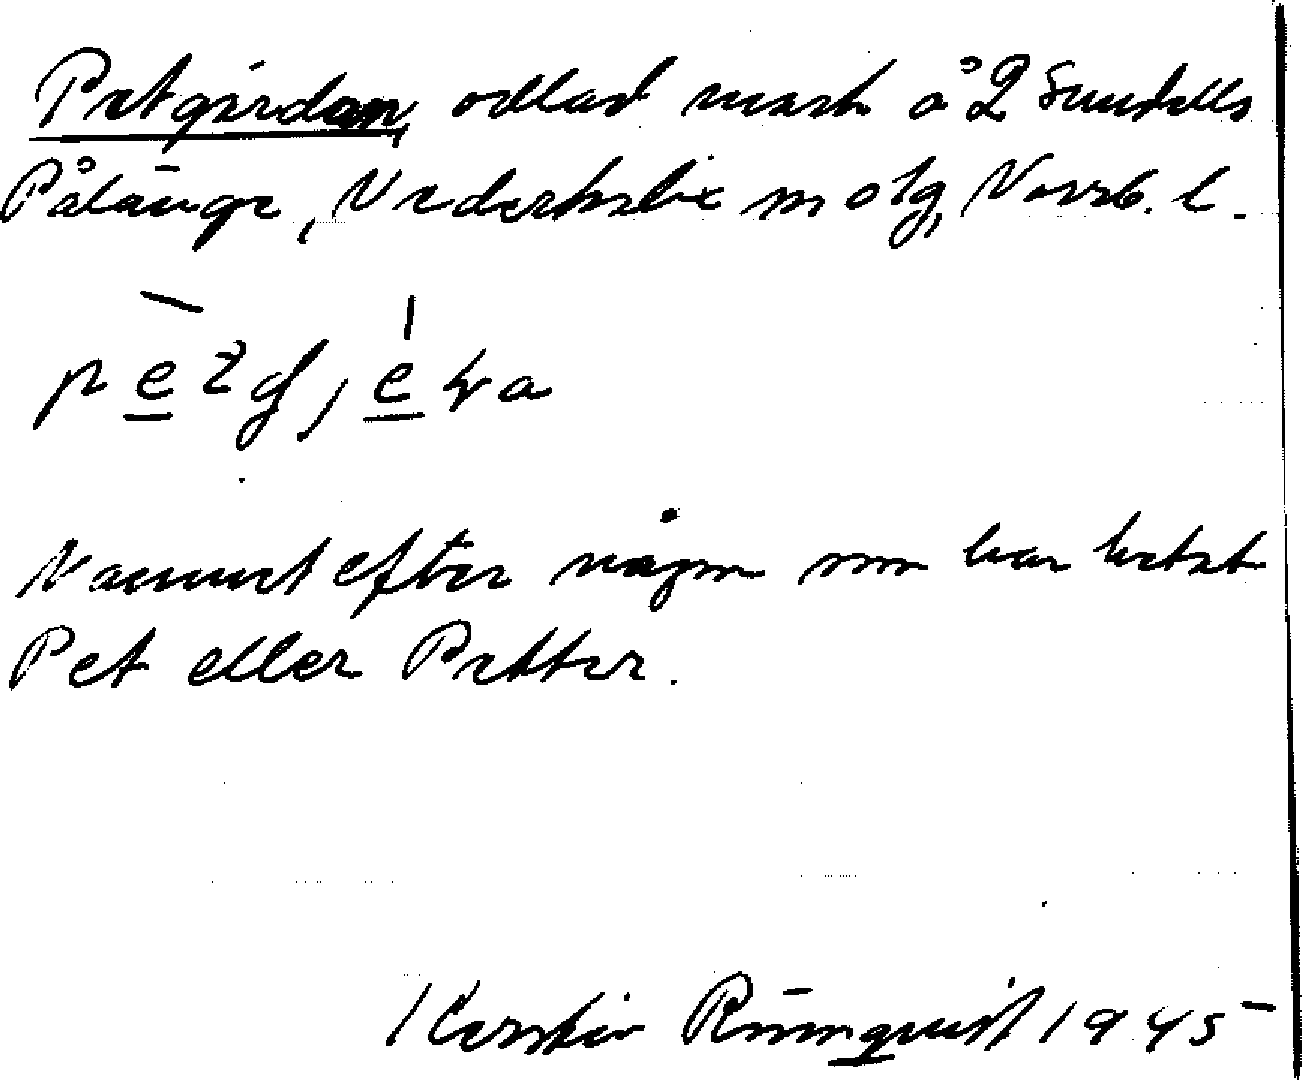 Petgärdan, odlad mark å 2 Sundells
Pålänge, Nederkalix sn o tg, Norrb. l.
Namnet efter någon som har hetat
Pet eller Petter.
Kerstin Rönnquist 1945